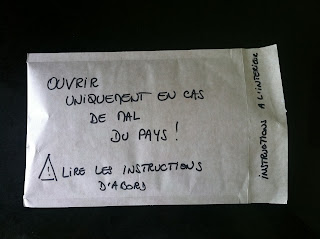 OUVRIR
UNIQUEMENT EN CAS
DE MAL
DU PAYS !
⚠ LIRE LES INSTRUCTIONS
D'ABORS
INSTRUCTIONS A L'INTERIEUR